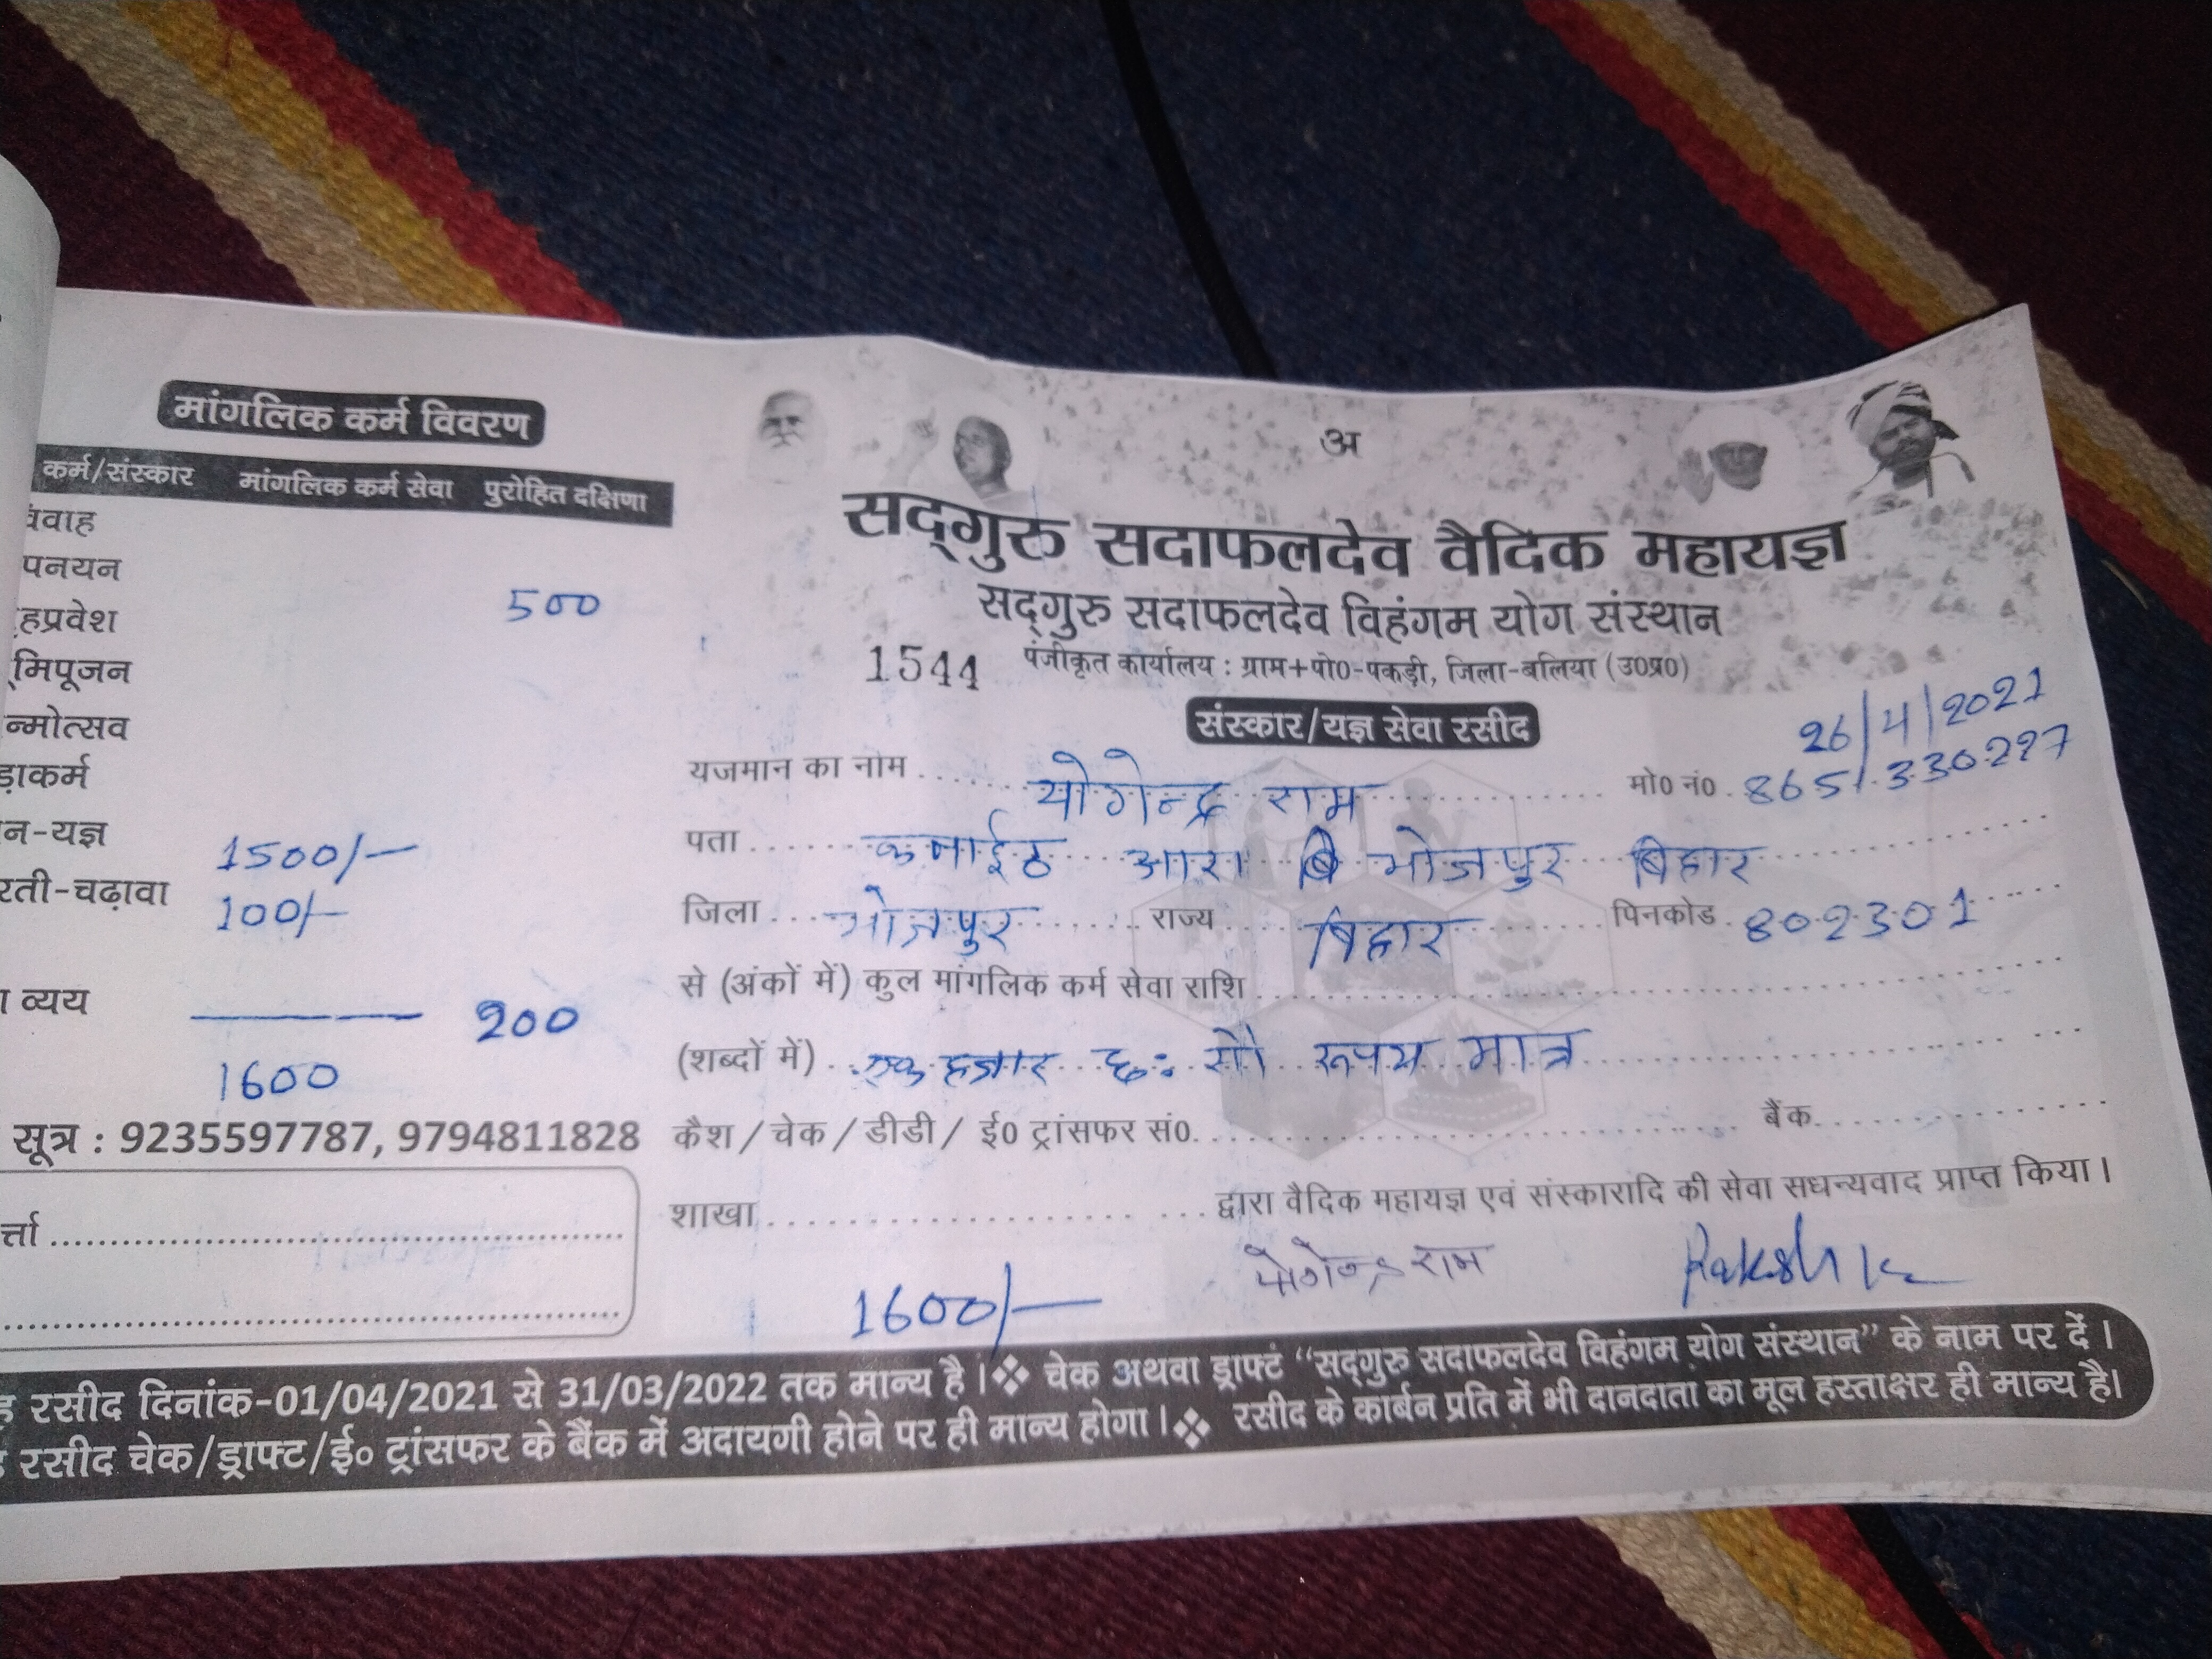 मांगलिक कर्म विवरण
कर्म/संस्कार मांगलिक कर्म सेवा पुरोहित दक्षिणा
विवाह
पनयन
हप्रवेश 500
मिपूजन
न्मोत्सव
ड़ाकर्म
न-यज्ञ 1500/-
रती-चढ़ावा 100/-
व्यय 200
1600
सूत्र : 9235597787, 9794811828
र्त्ता
अ
सद्गुरु सदाफलदेव वैदिक महायज्ञ
सद्गुरु सदाफलदेव विहंगम योग संस्थान
1544 पंजीकृत कार्यालय : ग्राम+पो0-पकड़ी, जिला-बलिया (उ0प्र0)
संस्कार/यज्ञ सेवा रसीद 26/4/2021
यजमान का नोम योगेन्द्र राम मो0 नं0 8651330227
पता कनाईठ आरा भोजपुर बिहार
जिला भोजपुर राज्य बिहार पिनकोड 802301
से (अंकों में) कुल मांगलिक कर्म सेवा राशि
(शब्दों में) एक हजार छ: सौ रूपय मात्र
कैश / चेक / डीडी / ई0 ट्रांसफर सं0. बैंक
शाखा द्वारा वैदिक महायज्ञ एवं संस्कारादि की सेवा सधन्यवाद प्राप्त किया।
1600/- योगेन्द्र राम
रसीद दिनांक-01/04/2021 से 31/03/2022 तक मान्य है। ❖ चेक अथवा ड्राफ्ट "सद्गुरु सदाफलदेव विहंगम योग संस्थान" के नाम पर दें।
रसीद चेक/ड्राफ्ट/ई० ट्रांसफर के बैंक में अदायगी होने पर ही मान्य होगा। ❖ रसीद के कार्बन प्रति में भी दानदाता का मूल हस्ताक्षर ही मान्य है।